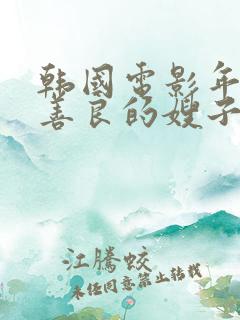 韩国电影年
善良的嫂子
江腾蛟
未经同意禁止转载